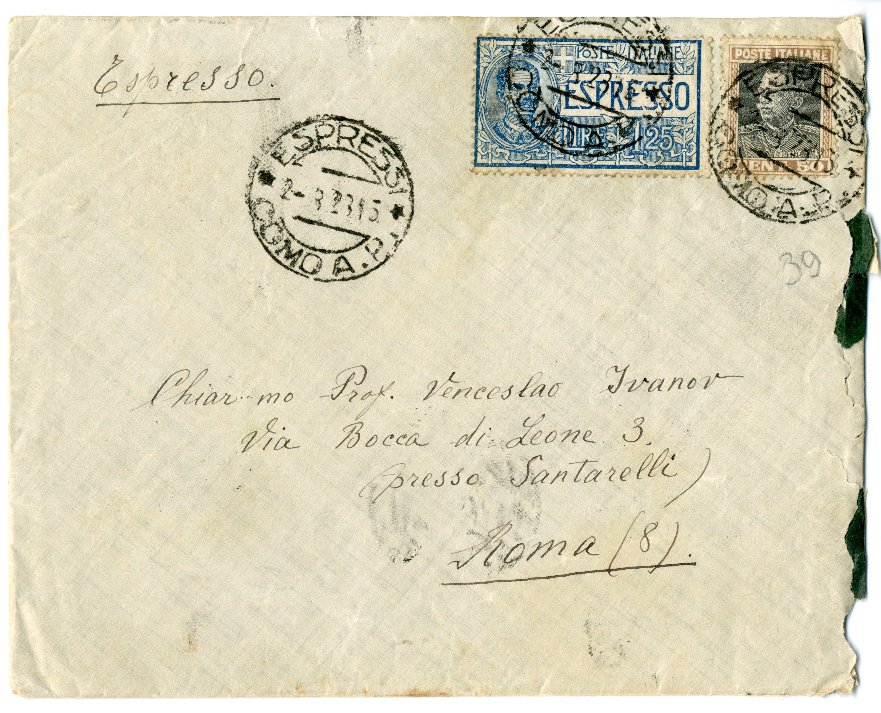 Espresso.
POSTE ITALIANE
ESPRESSO
LIRE 1,25
POSTE ITALIANE
CENT. 50
ESPRESSI
COMO A.P.
ESPRESSI
2-8.28.15
COMO A.P.
39
Chiar-mo Prof. Venceslao Ivanov
Via Bocca di Leone 3.
(presso Santarelli)
Roma (8).